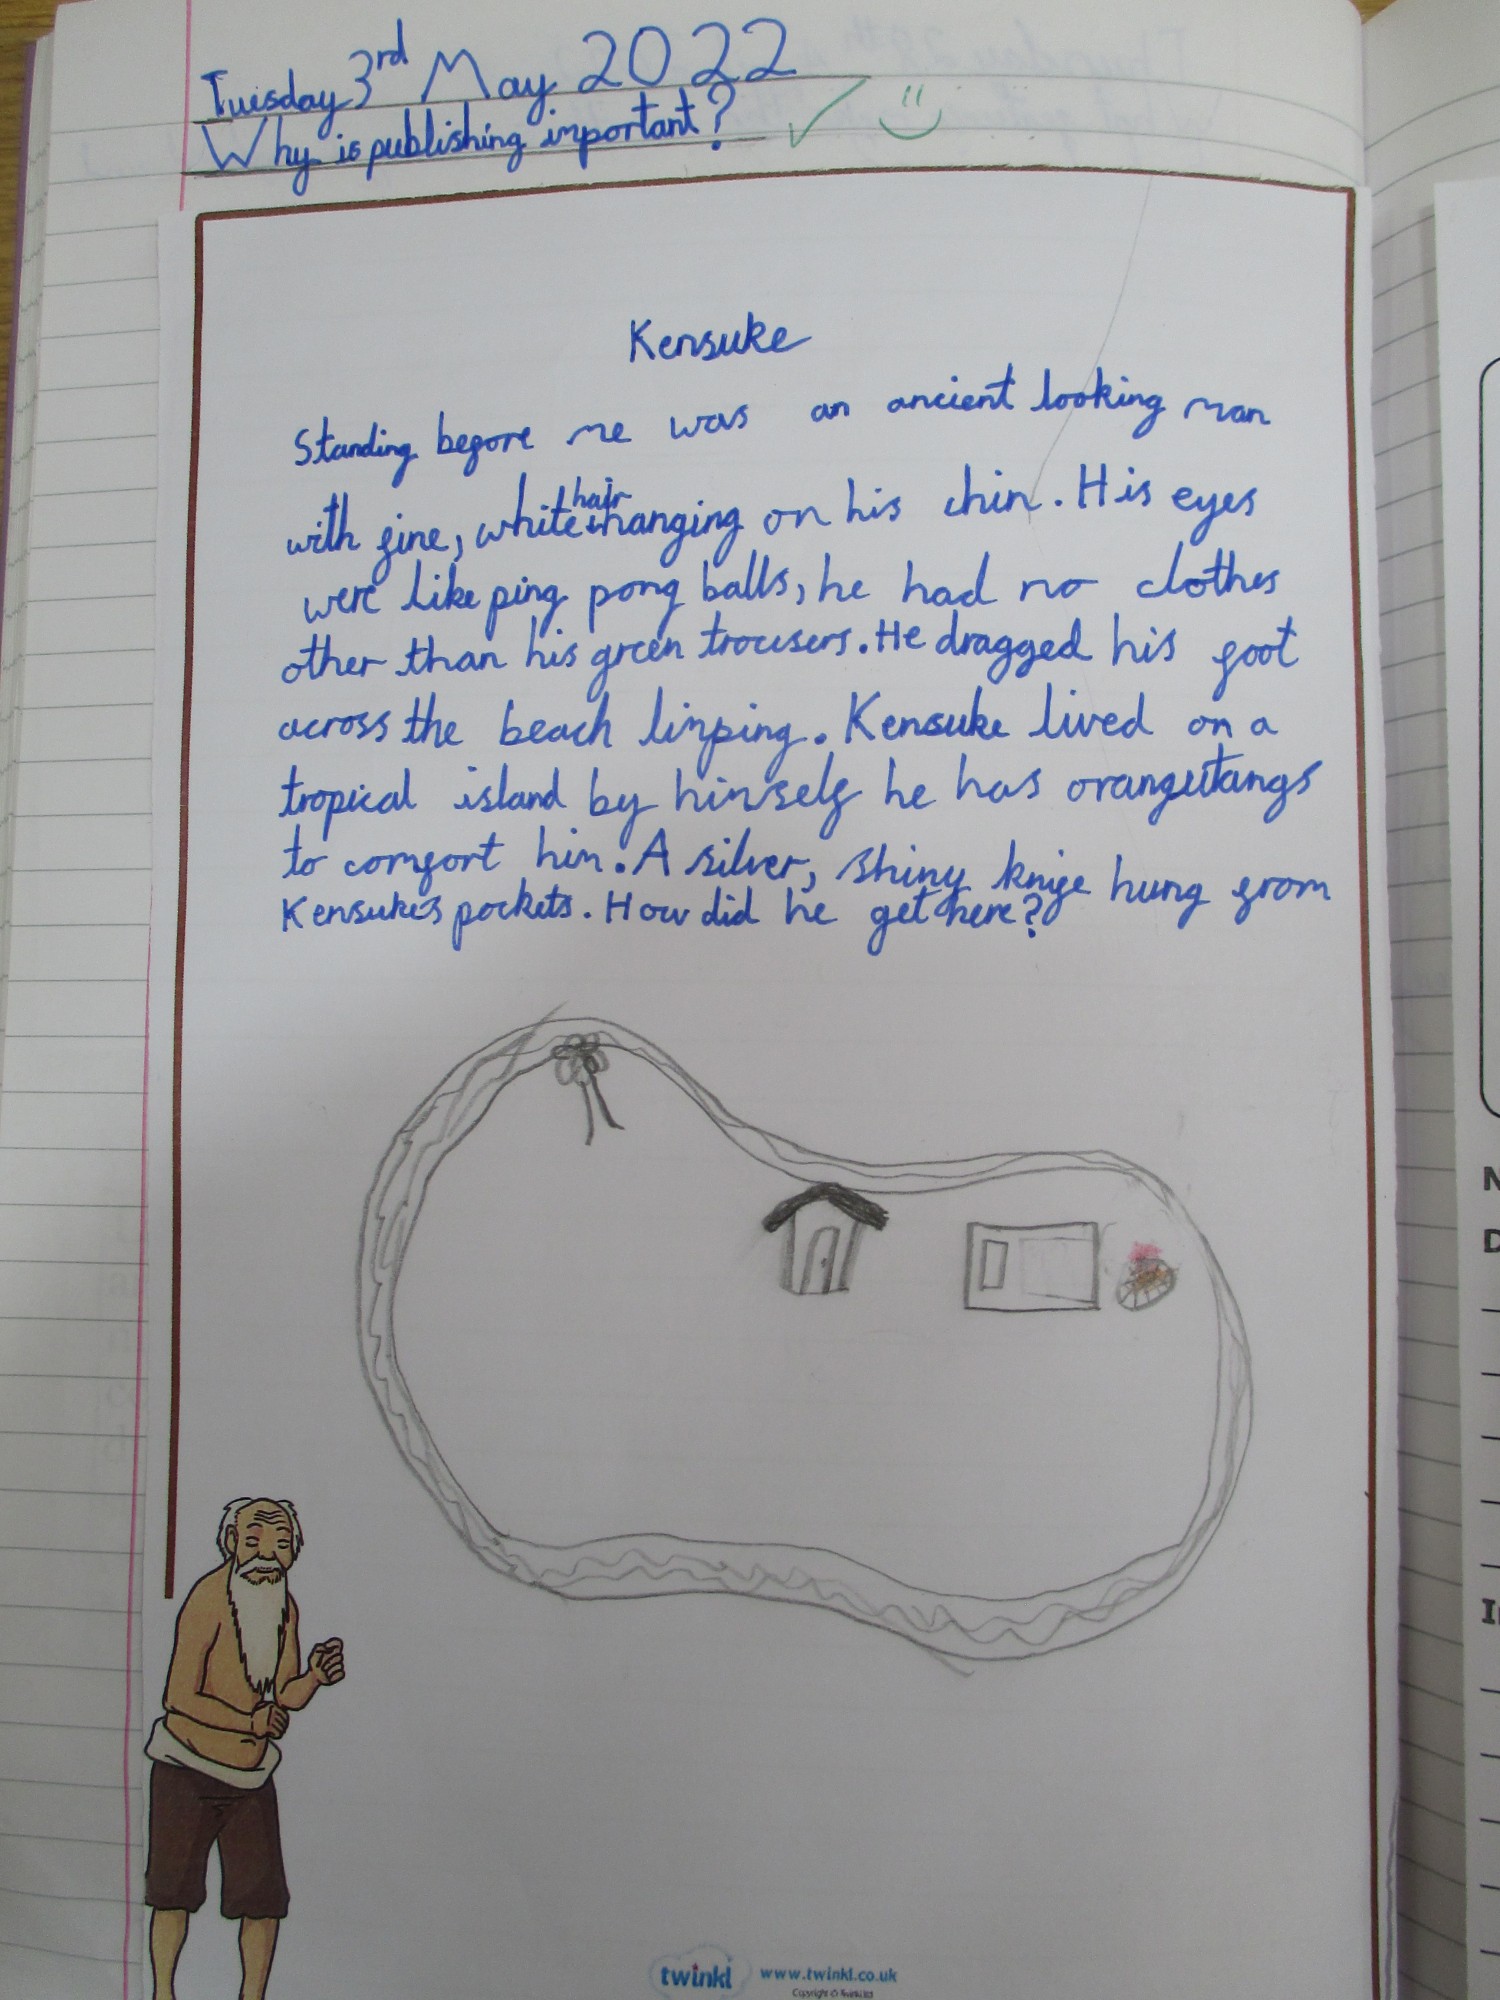 Tuesday 3rd May 2022
Why is publishing important?
Kensuke
Standing before me was an ancient looking man
with fine, white hair hanging on his chin. His eyes
were like ping pong balls, he had no clothes
other than his green trousers. He dragged his foot
across the beach limping. Kensuke lived on a
tropical island by himself he has orangutangs
to comfort him. A silver, shiny knife hung from
Kensuke's pockets. How did he get here?
twinkl www.twinkl.co.uk